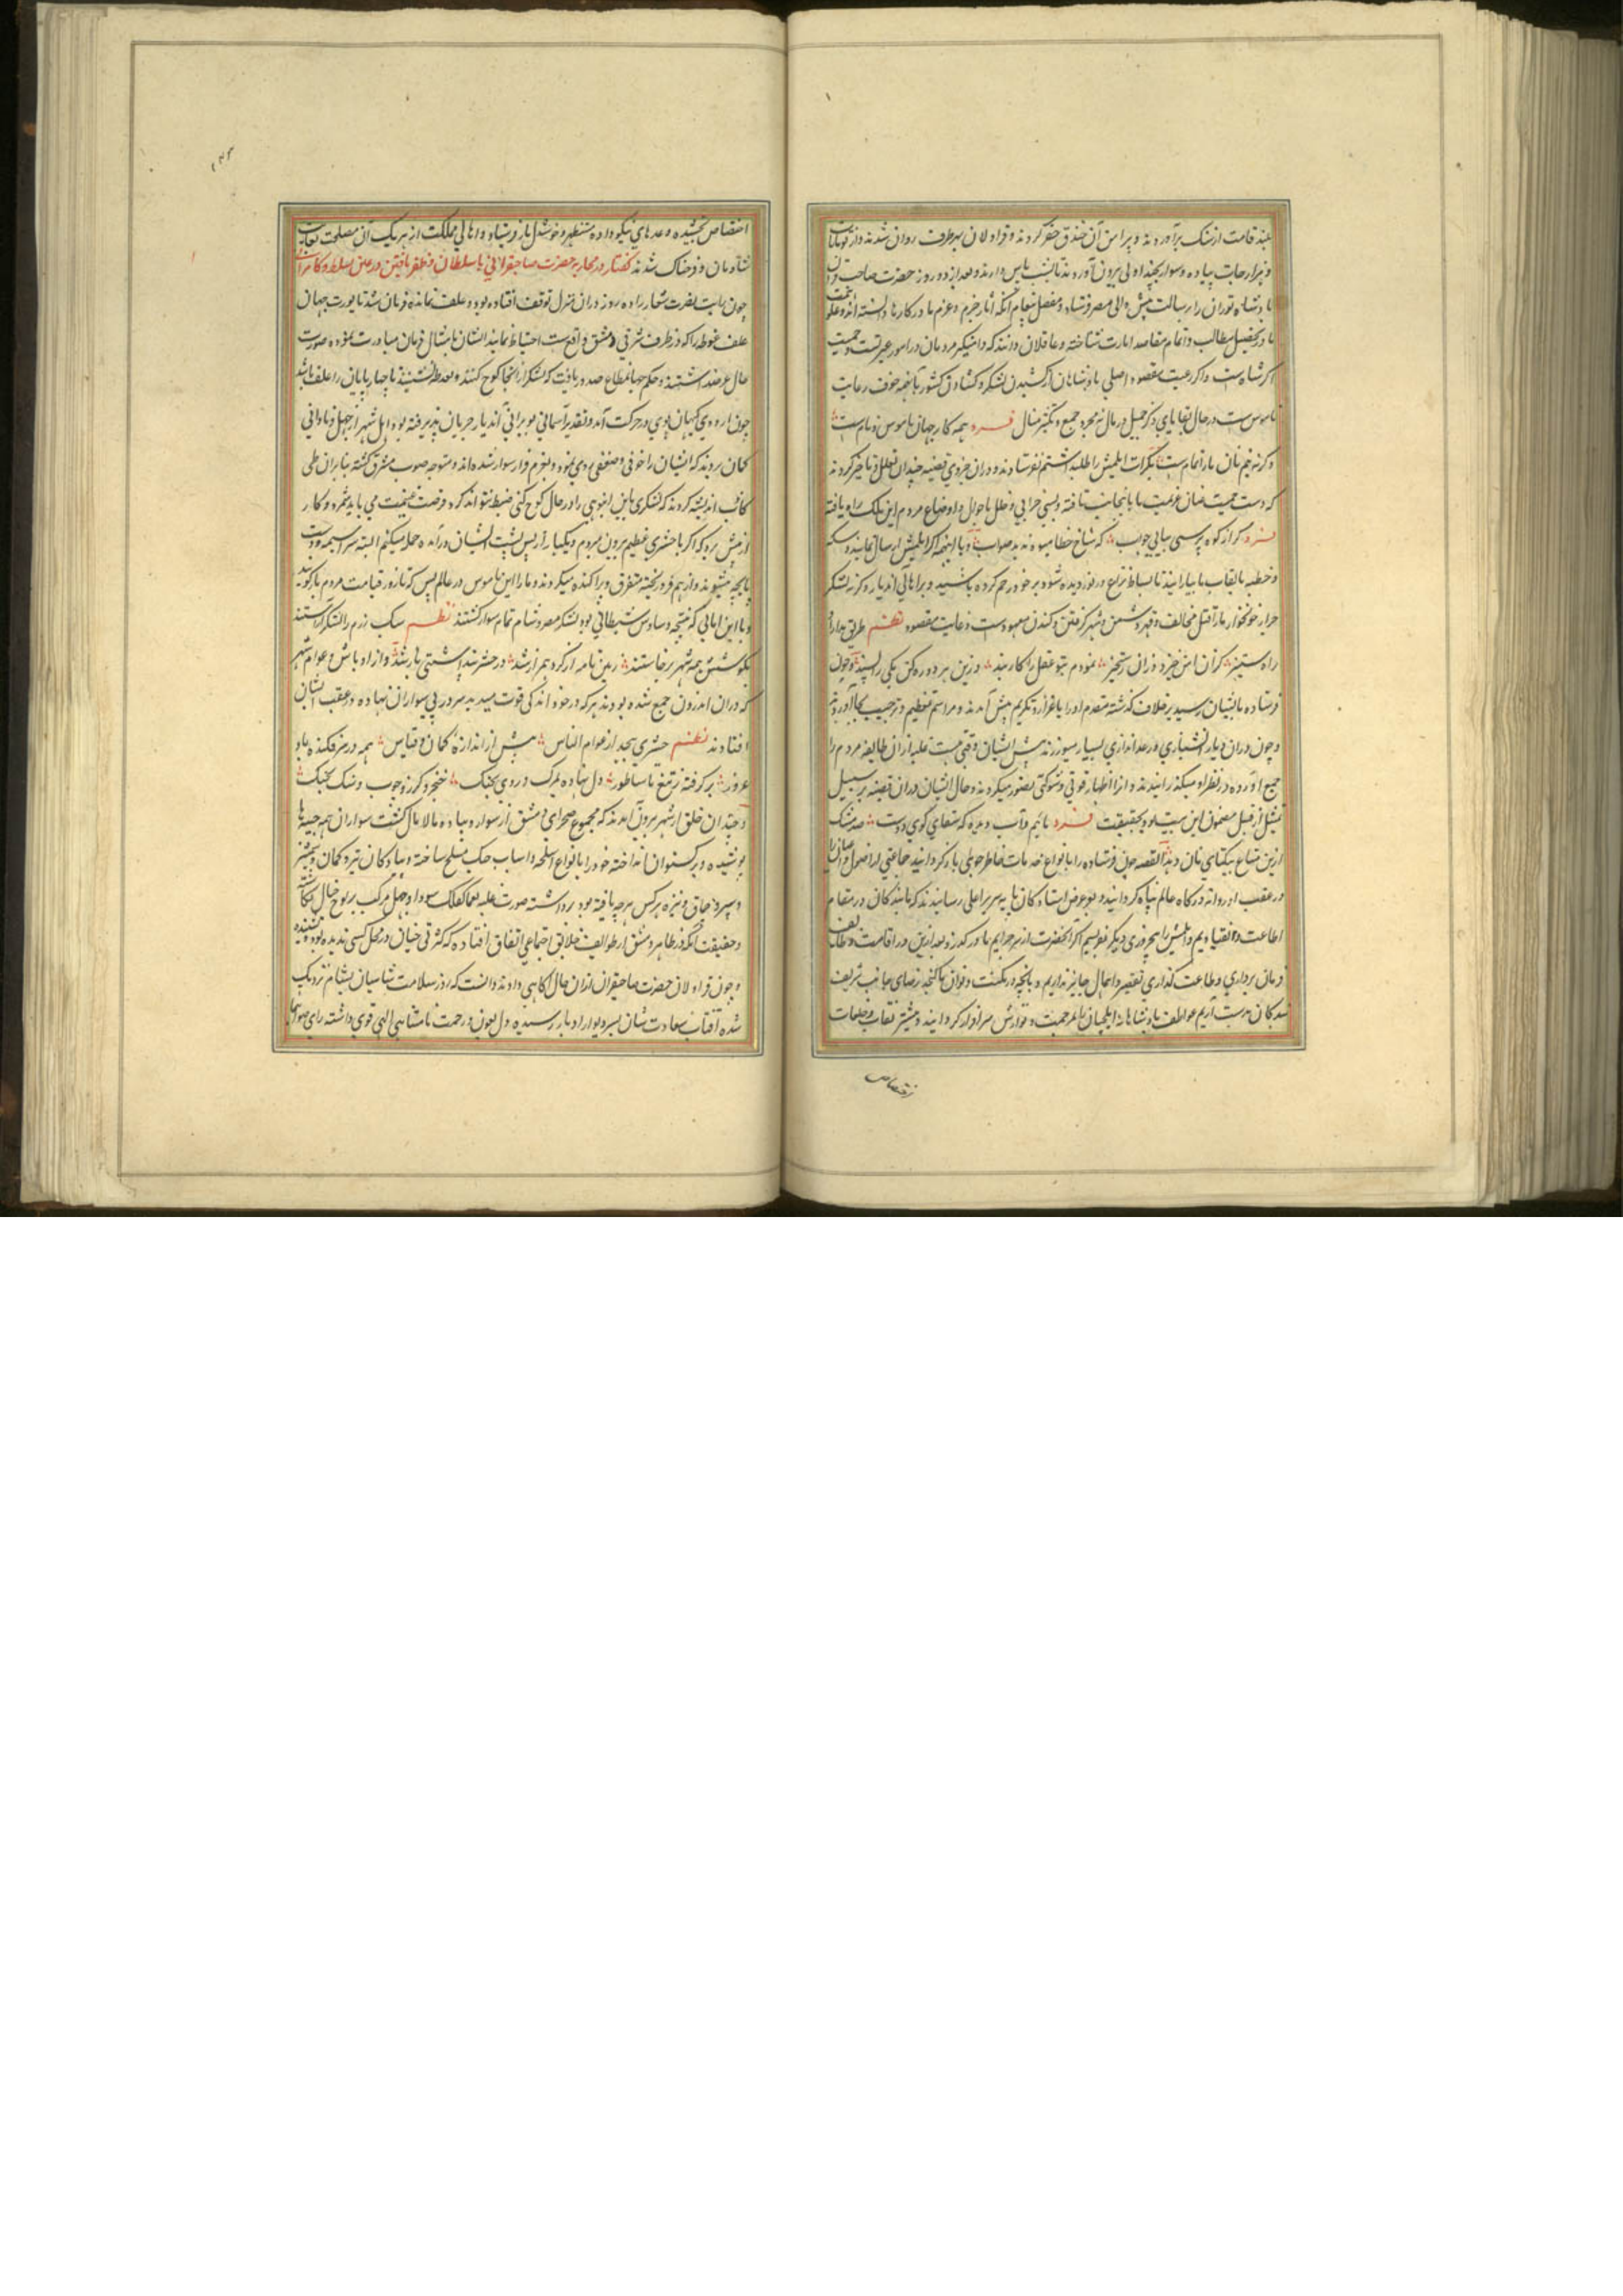 بلند قامت از سنک برآوردند و پیرامن آن خندق حفر کردند و قراولان بهر طرف روان شدند و از قوشانات
و هزارجات پیاده و سوار بجنداولی بیرون آوردند تا بشب پاس دارند و بعد از دو روز حضرت صاحب قران
پادشاه توران را برسالت پیش والی مصر فرستاد و مفصل پیغام آنکه آثار جزم و عزم ما در کارها دانسته اند و علو همت
ما در تحصیل مطالب و اتمام مقاصد امارت شناخته و عاقلان دانند که دامنکیر مردمان در امور غیرتست و حمیت
اکر شاه است و اکر رعیت مقصود اصلی پادشاهان از کشیدن لشکر و کشادن کشور با اینهمه خوف رعایت
ناموس ست در حال بقا و ذکر جمیل در مآل نه مجرد جمع و تکثیر منال فرد همه کار جهان ناموس و نام ست
و کرنه نیم نان ما را تمام ست بکرات ایلمش را طلب داشتیم نفرستادند و دران جزوی قضیه چندان تعلل و تاخیر کردند
که دست حمیت عنان عزیمت ما باینجانب تافته و بسی خرابی و خلل باحوال و اوضاع مردم این ملک راه یافته
فرد کر از کوه پرسی بیابی جواب که شاخ خطا میوه ندهد صواب و با اینهمه اکر ایلمش ارسال نمایند و سکه
و خطبه بالقاب ما بیارایند تا بساط نزاع در نوردیده شود بر خود رحم کرده باشید و بر اهالی آن دیار و کرنه لشکر
جرار خونخوار ما را قتل مخالف و قهر دشمن و شهر کرفتن و کندن معهودست و غایت مقصود نظم طریق مدارا و
راه ستیز کزان امن خیزد و زان رستخیز نمودم بتو عقل را کار بند وزین هر دو ره کن یکی را پسند و چون
فرستاده بایشان رسید بر خلاف کذشته مقدم او را باعزاز و تکریم پیش آمدند و مراسم تعظیم و ترحیب بجا آوردند
و چون دران دیار آتشبازی و رعد اندازی بسیار میورزند پیش ایشان وقعی هست غلبه ازان طایفه مردم را
جمع آورده در نظر او میکذرانیدند و از ان اظهار قوتی و شوکتی تصور میکردند و حال ایشان دران قضیه بر سبیل
تمثیل از قبیل مضمون این بیت بود بحقیقت فرد مائیم و آب دیده که سقای کوی دوست صد مشک
ازین متاع بیکتای نان دهد القصه چون فرستاده را بانواع خدمات خاطرجوئی باز کردانیدند جماعتی را از اصول و اعیان
در عقب او روانه درکاه عالم پناه کردانیدند و بموقف ایستادکان پایه سریر اعلی رسانیدند که ما بندکان در مقام
اطاعت و انقیادیم و ایلمش را پنج روز دیکر بفرستیم اکر آنحضرت از سر جرایم ما در کذرد و بعد ازین در اقامت وظایف
فرمان برداری و طاعت کذاری تقصیر و اهمال جایز نداریم و بانچه در مکنت و توان ما کنجد رضای جانب شریف
بندکان بدست آریم عواطف پادشاهانه ایلچیان را بمرحمت و نوازش سرافراز کردانید و بیشتر نقاب و خلعات
اختصاص
۱۴۳
اختصاص بخشیده وعدهای نیکو داده مستظهر و خوشدل باز فرستاد و اهالی مملکت از نزدیک آن مصلحت بغایت
شادمان و فرحناک شدند کفتار در محاربه حضرت صاحبقرانی با سلطان و ظفر یافتن در عین تسلط و کامرانی
چون رایت نصرت شعار را ده روز دران منزل توقف افتاده بود و علف نمانده فرمان شد تا یورت جهان
علف غوطه را که در طرف شرقی دمشق واقع ست احتیاط نمایند ایشان بامتثال فرمان مبادرت نموده صورت
حال عرضه داشتند و حکم جهانمطاع صدور یافت که لشکر از آنجا کوچ کنند و بعوطه نشینند تا چهارپایان را علف باشد
چون اردوی کیهان پوی در حرکت آمد و تقدیر آسمانی بویرانی آن دیار جریان پذیرفته بود اهل شهر از جهل و نادانی
کمان بردند که ایشان را خوفی و ضعفی روی نموده و بعزم فرار سوار شده اند و متوجه صوب مشرق کشته بنابران ظن
کاذب اندیشه کردند که لشکری باین انبوهی را در حال کوچ کنی ضبط نتوان کرد فرصت غنیمت می باید شمرد و کار
از پیش برد که اکر با حشری عظیم بیرون رویم و یکبار از پس پشت ایشان درآمده حمله میکنیم البته سراسیمه و دست
پاچه میشوند و از هم فرو ریخته متفرق و پراکنده میکردند و ما را این ناموس در عالم بس که تا روز قیامت مردم باز کویند
و با این امانی که نتیجه وساوس شیطانی بود لشکر مصر و شام تمام سوار کشتند نظم سبک رزم را لشکر آراستند
بکوشش همه شهر برخاستند زمین نامه از کرد همراز شد در حشر بندکشتی باز شد و از اوباش و عوام شهر
که دران اندرون جمع شده بودند هر که در خود اندکی قوت میدید سر در پی سواران نهاده در عقب ایشان
افتادند نظم حشری بیحد از عوام الناس بیش از اندازه کمان و قیاس همه در سر فکنده باد
غرور برکرفته ز تیغ تا ساطور دل نهاده بمرک و روی بجنک خنجر و کرز و چوب و سنک بچنک
و چندان خلق از شهر بیرون آمدند که مجموع صحرای دمشق از سوار و پیاده مالامال کشت سواران همه جیبه ها
پوشیده و برکستوان انداخته خود را بانواع اسلحه و اسباب جنک مسلح ساخته و پیادکان تیر و کمان و شمشیر
و سپر و چماق و نیزه هر کس هر چه یافته بود برداشته صورت غلبه بعما کفلک سودا و جهل مرکب بر لوح خیال نکاشته
و حقیقت آنکه در ظاهر دمشق از طوایف خلایق اجتماعی اتفاق افتاده که کثرتی چنان در محل کسی ندیده بود و نشنیده
و چون قراولان حضرت صاحبقران ازان حال آکاهی دادند دانست که روز سلامت شامیان بشام نزدیک
شده آفتاب سعادت شان بسر دیوار ادبار رسیده دل بعون و رحمت نامتناهی الهی قوی داشته رای صواب